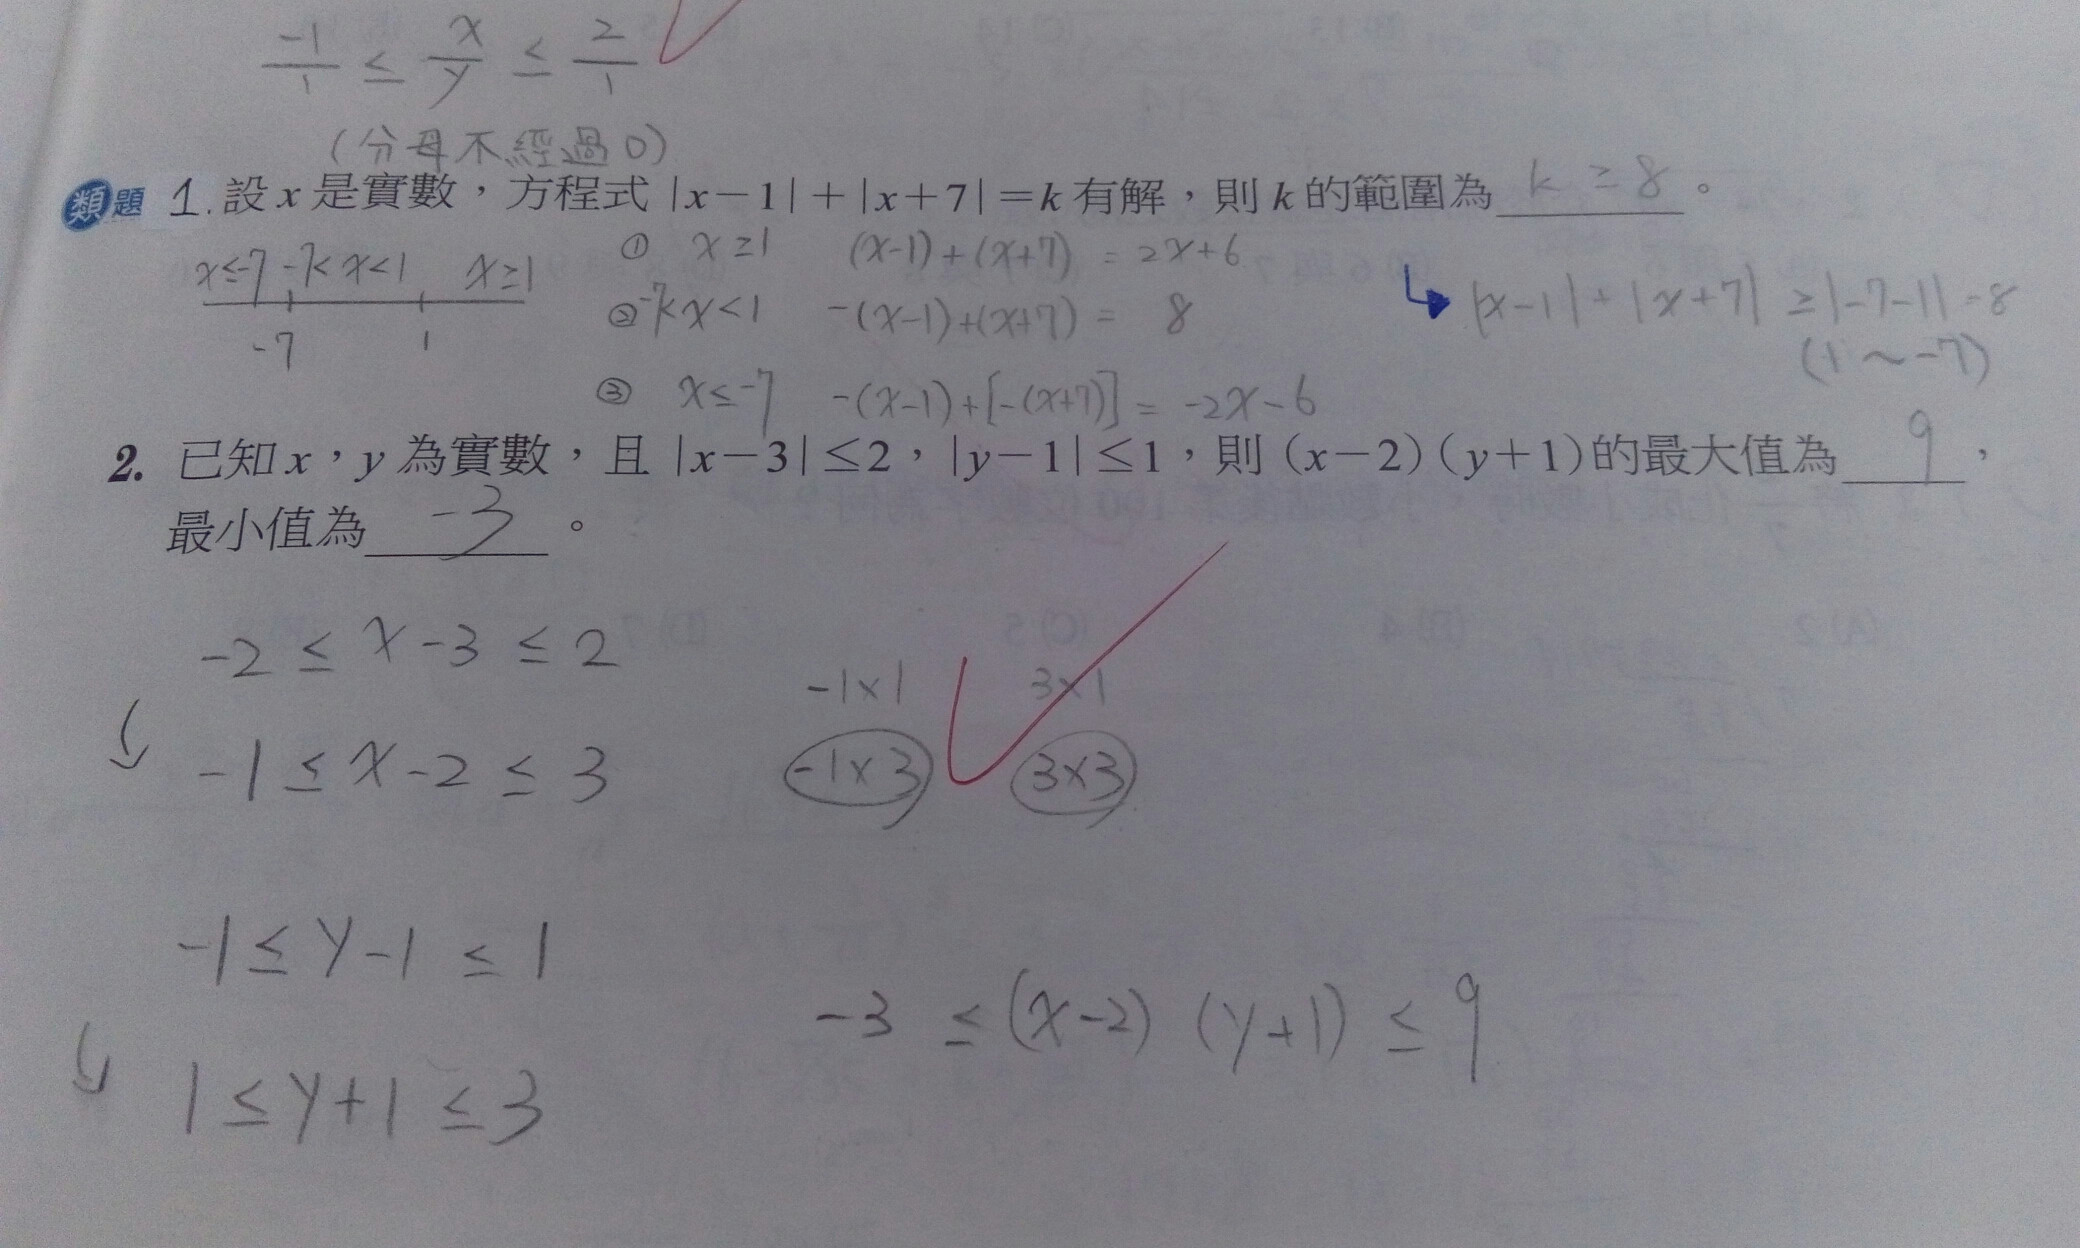 -1/1 ≤ x/y ≤ 2/1
(分母不經過0)
類題 1.設 x 是實數，方程式 |x-1|+|x+7|=k 有解，則 k 的範圍為 k ≥ 8 。
x≤-7 -7<x<1 x≥1
-7 1
① x≥1 (x-1)+(x+7) = 2x+6
② -7<x<1 -(x-1)+(x+7) = 8
③ x≤-7 -(x-1)+[-(x+7)] = -2x-6
|x-1|+|x+7| ≥ |-7-1| = 8
(1~-7)
2. 已知 x，y 為實數，且 |x-3|≤2，|y-1|≤1，則 (x-2)(y+1)的最大值為 9 ，
最小值為 -3 。
-2 ≤ x-3 ≤ 2
-1 ≤ x-2 ≤ 3
-1x1 3x1
-1x3 3x3
-1 ≤ y-1 ≤ 1
1 ≤ y+1 ≤ 3
-3 ≤ (x-2) (y+1) ≤ 9